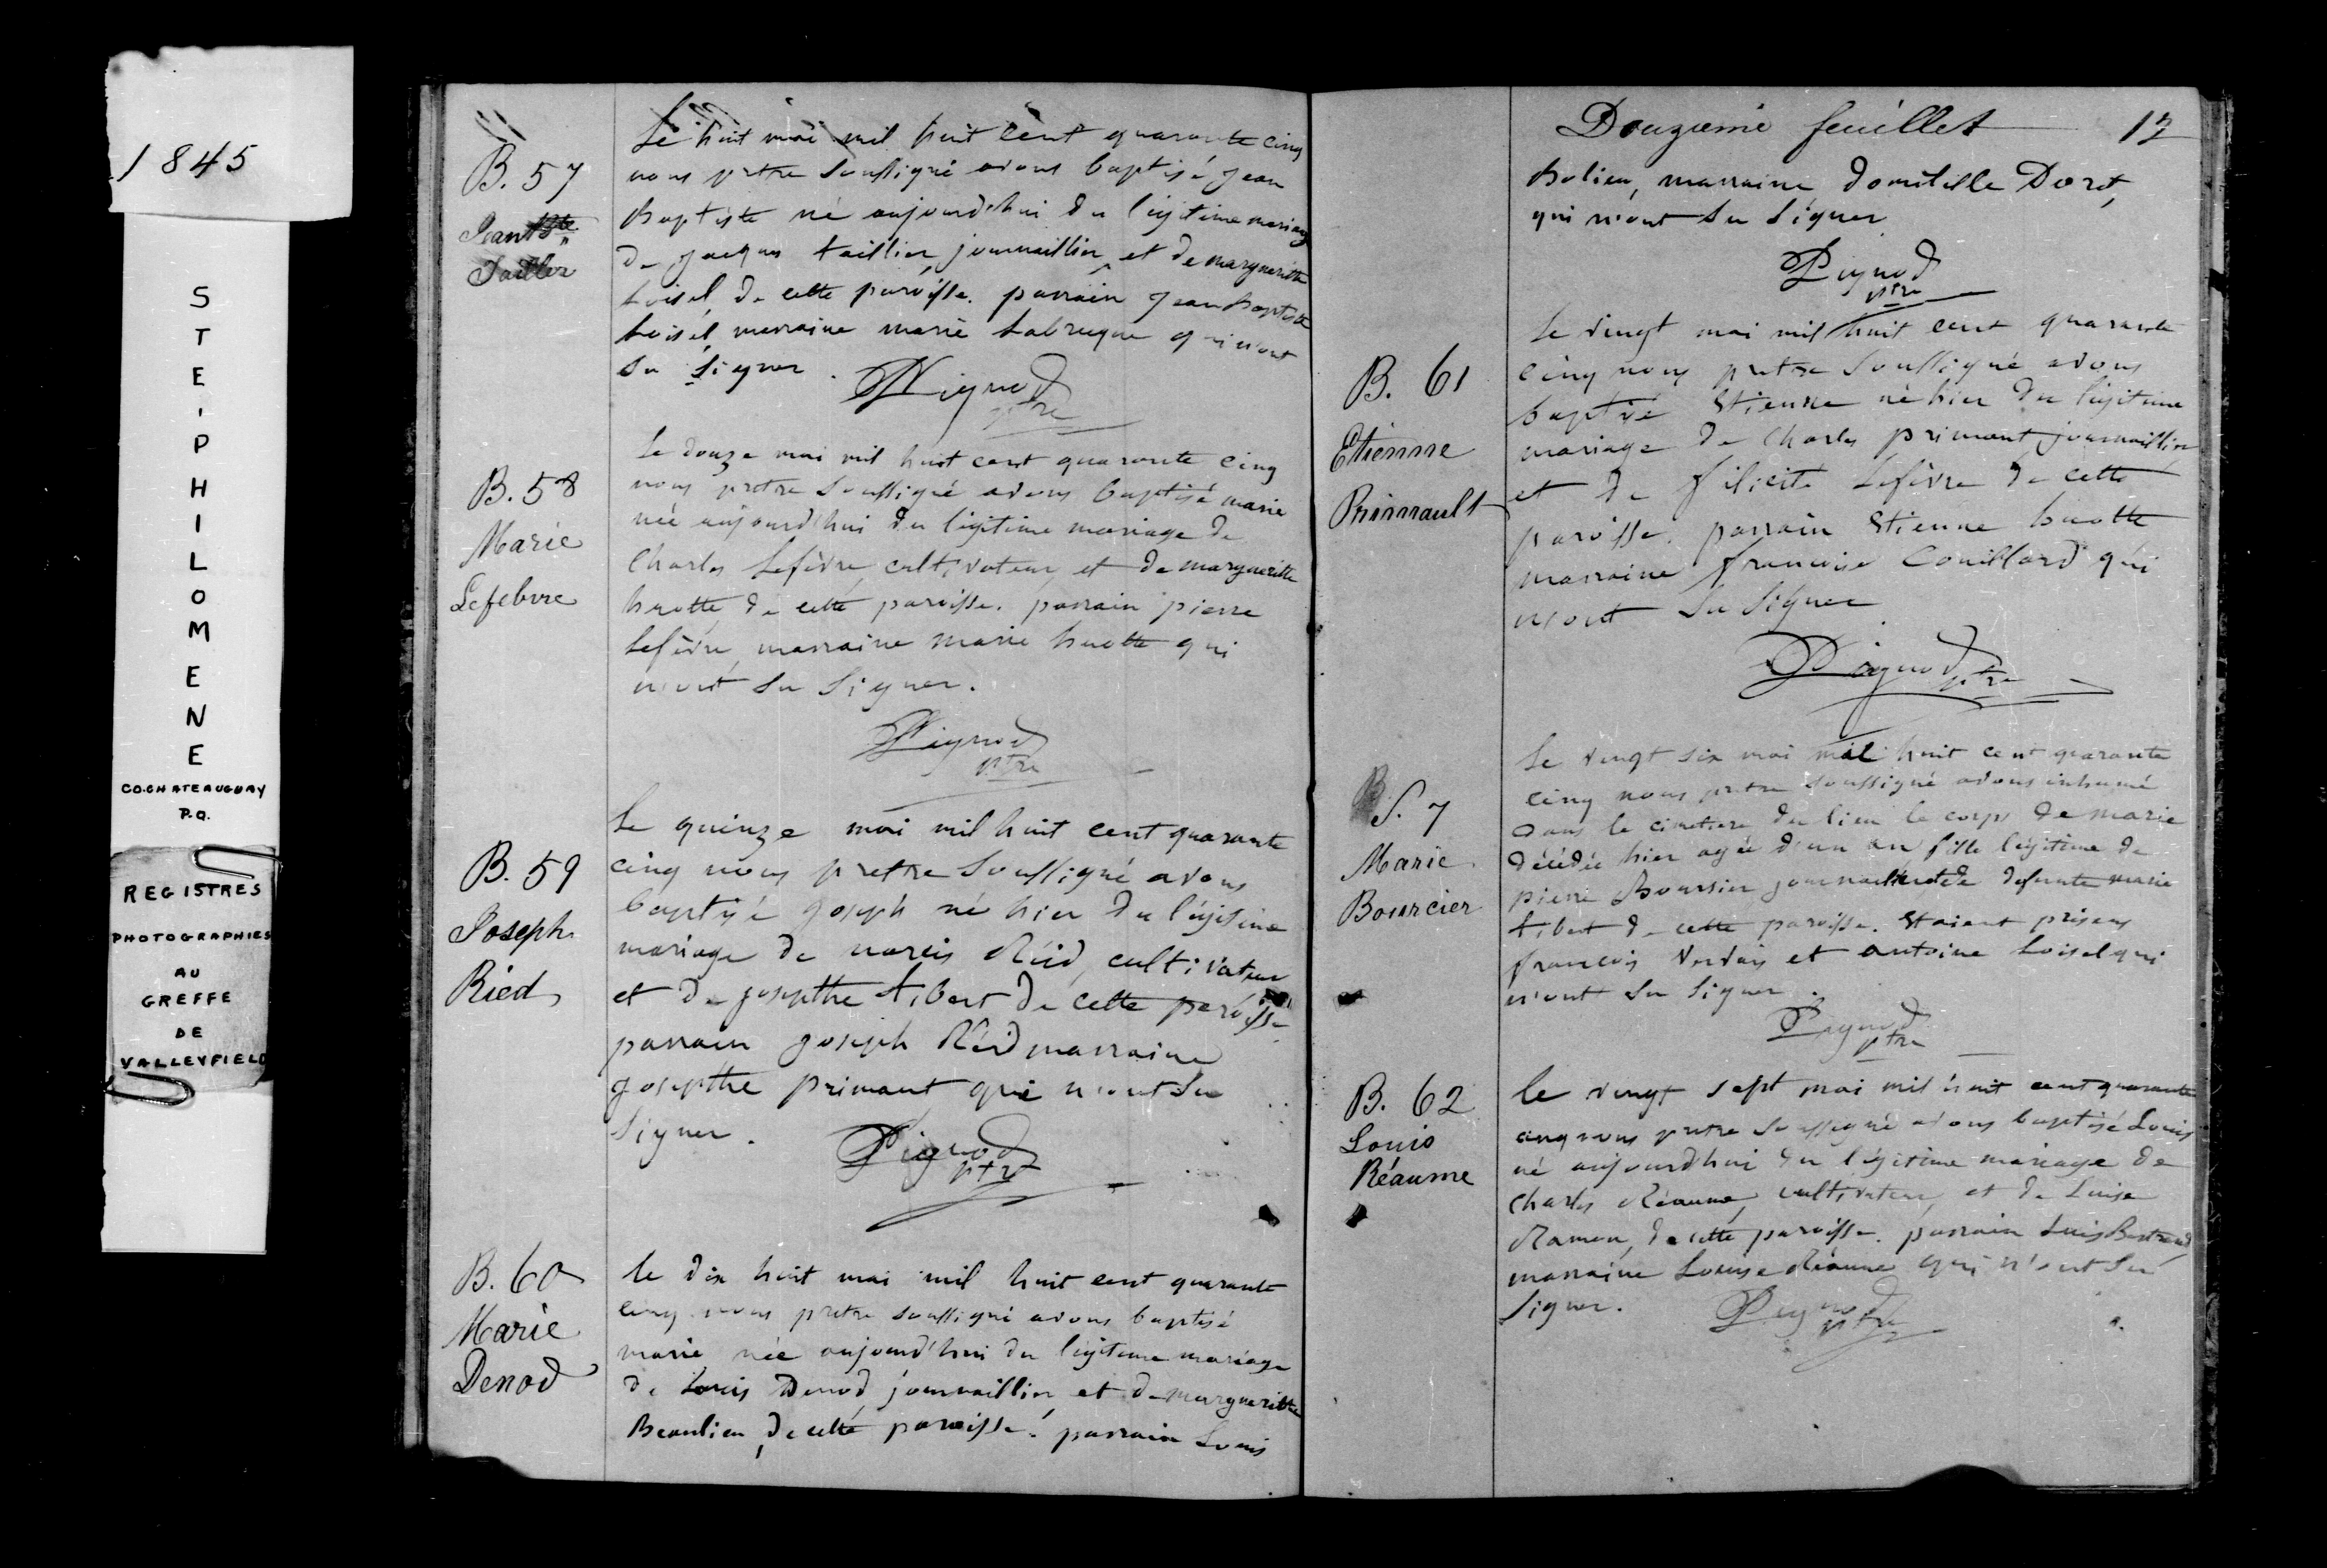 1845
STE-PHILOMENE
CO. CHATEAUGUAY
P.Q.
REGISTRES
PHOTOGRAPHIES
AU
GREFFE
DE
VALLEYFIELD
B. 57
Jean Bte
Tailler
Le huit mai mil huit cent quarante cinq
nous pretre soussigné avons baptisé jean
Baptiste né aujourd'hui du légitime mariage
de jacques taillier journaillier et de margueritte
Loisel de cette paroisse. parrain jean baptiste
Loisel marraine marie Labrecque qui n'ont
su signer.
Pignod
ptre
B. 58
Marie
Lefebvre
Le douze mai mil huit cent quarante cinq
nous pretre soussigné avons baptisé marie
née aujourd'hui du légitime mariage de
Charles Lefèvre, cultivateur, et de margueritte
huotte de cette paroisse. parrain pierre
Lefèvre, marraine marie huotte qui
n'ont su signer.
Pignod
ptre
B. 59
Joseph
Ried
Le quinze mai mil huit cent quarante
cinq nous pretre soussigné avons
baptisé joseph né hier du légitime
mariage de narcis Réid, cultivateur
et de josepthe tibert de cette paroisse
parrain joseph Réid marraine
josepthe primaut qui n'ont su
signer.
Pignod
ptre
B. 60
Marie
Denod
le dix huit mai mil huit cent quarante
cinq nous pretre soussigné avons baptisé
marie née aujourd'hui du légitime mariage
de Louis Denod, journaillier, et de margueritte
Beaulieu, de cette paroisse. parrain Louis
Douzieme feuillet 12
Bolieu, marraine domitille Doret,
qui n'ont su signer.
Pignod
ptre
B. 61
Etienne
Primault
Le vingt mai mil huit cent quarante
cinq nous pretre soussigné avons
baptisé Etienne né hier du légitime
mariage de Charles primaut journaillier
et de félicité Lefèvre de cette
paroisse. parrain Etienne huotte
marraine francoise Couillard qui
n'ont su signer
Pignod
ptre
S. 7
Marie
Bourcier
Le vingt six mai mil huit cent quarante
cinq nous pretre soussigné avons inhumé
dans le cimetiere du lieu le corps de marie
décédée hier agée d'un an fille légitime de
pierre Boursier journaillier et de defunte marie
tibert de cette paroisse. Etaient présens
francois et antoine Loisel qui
n'ont su signer.
Pignod
ptre
B. 62
Louis
Réaume
le vingt sept mai mil huit cent quarante
cinq nous pretre soussigné avons baptisé Louis
né aujourd'hui du légitime mariage de
Charles Réaume, cultivateur, et de Luise
de cette paroisse. parrain Luis Bertrand
marraine Louise Réaume qui n'ont su
signer.
Pignod
ptre